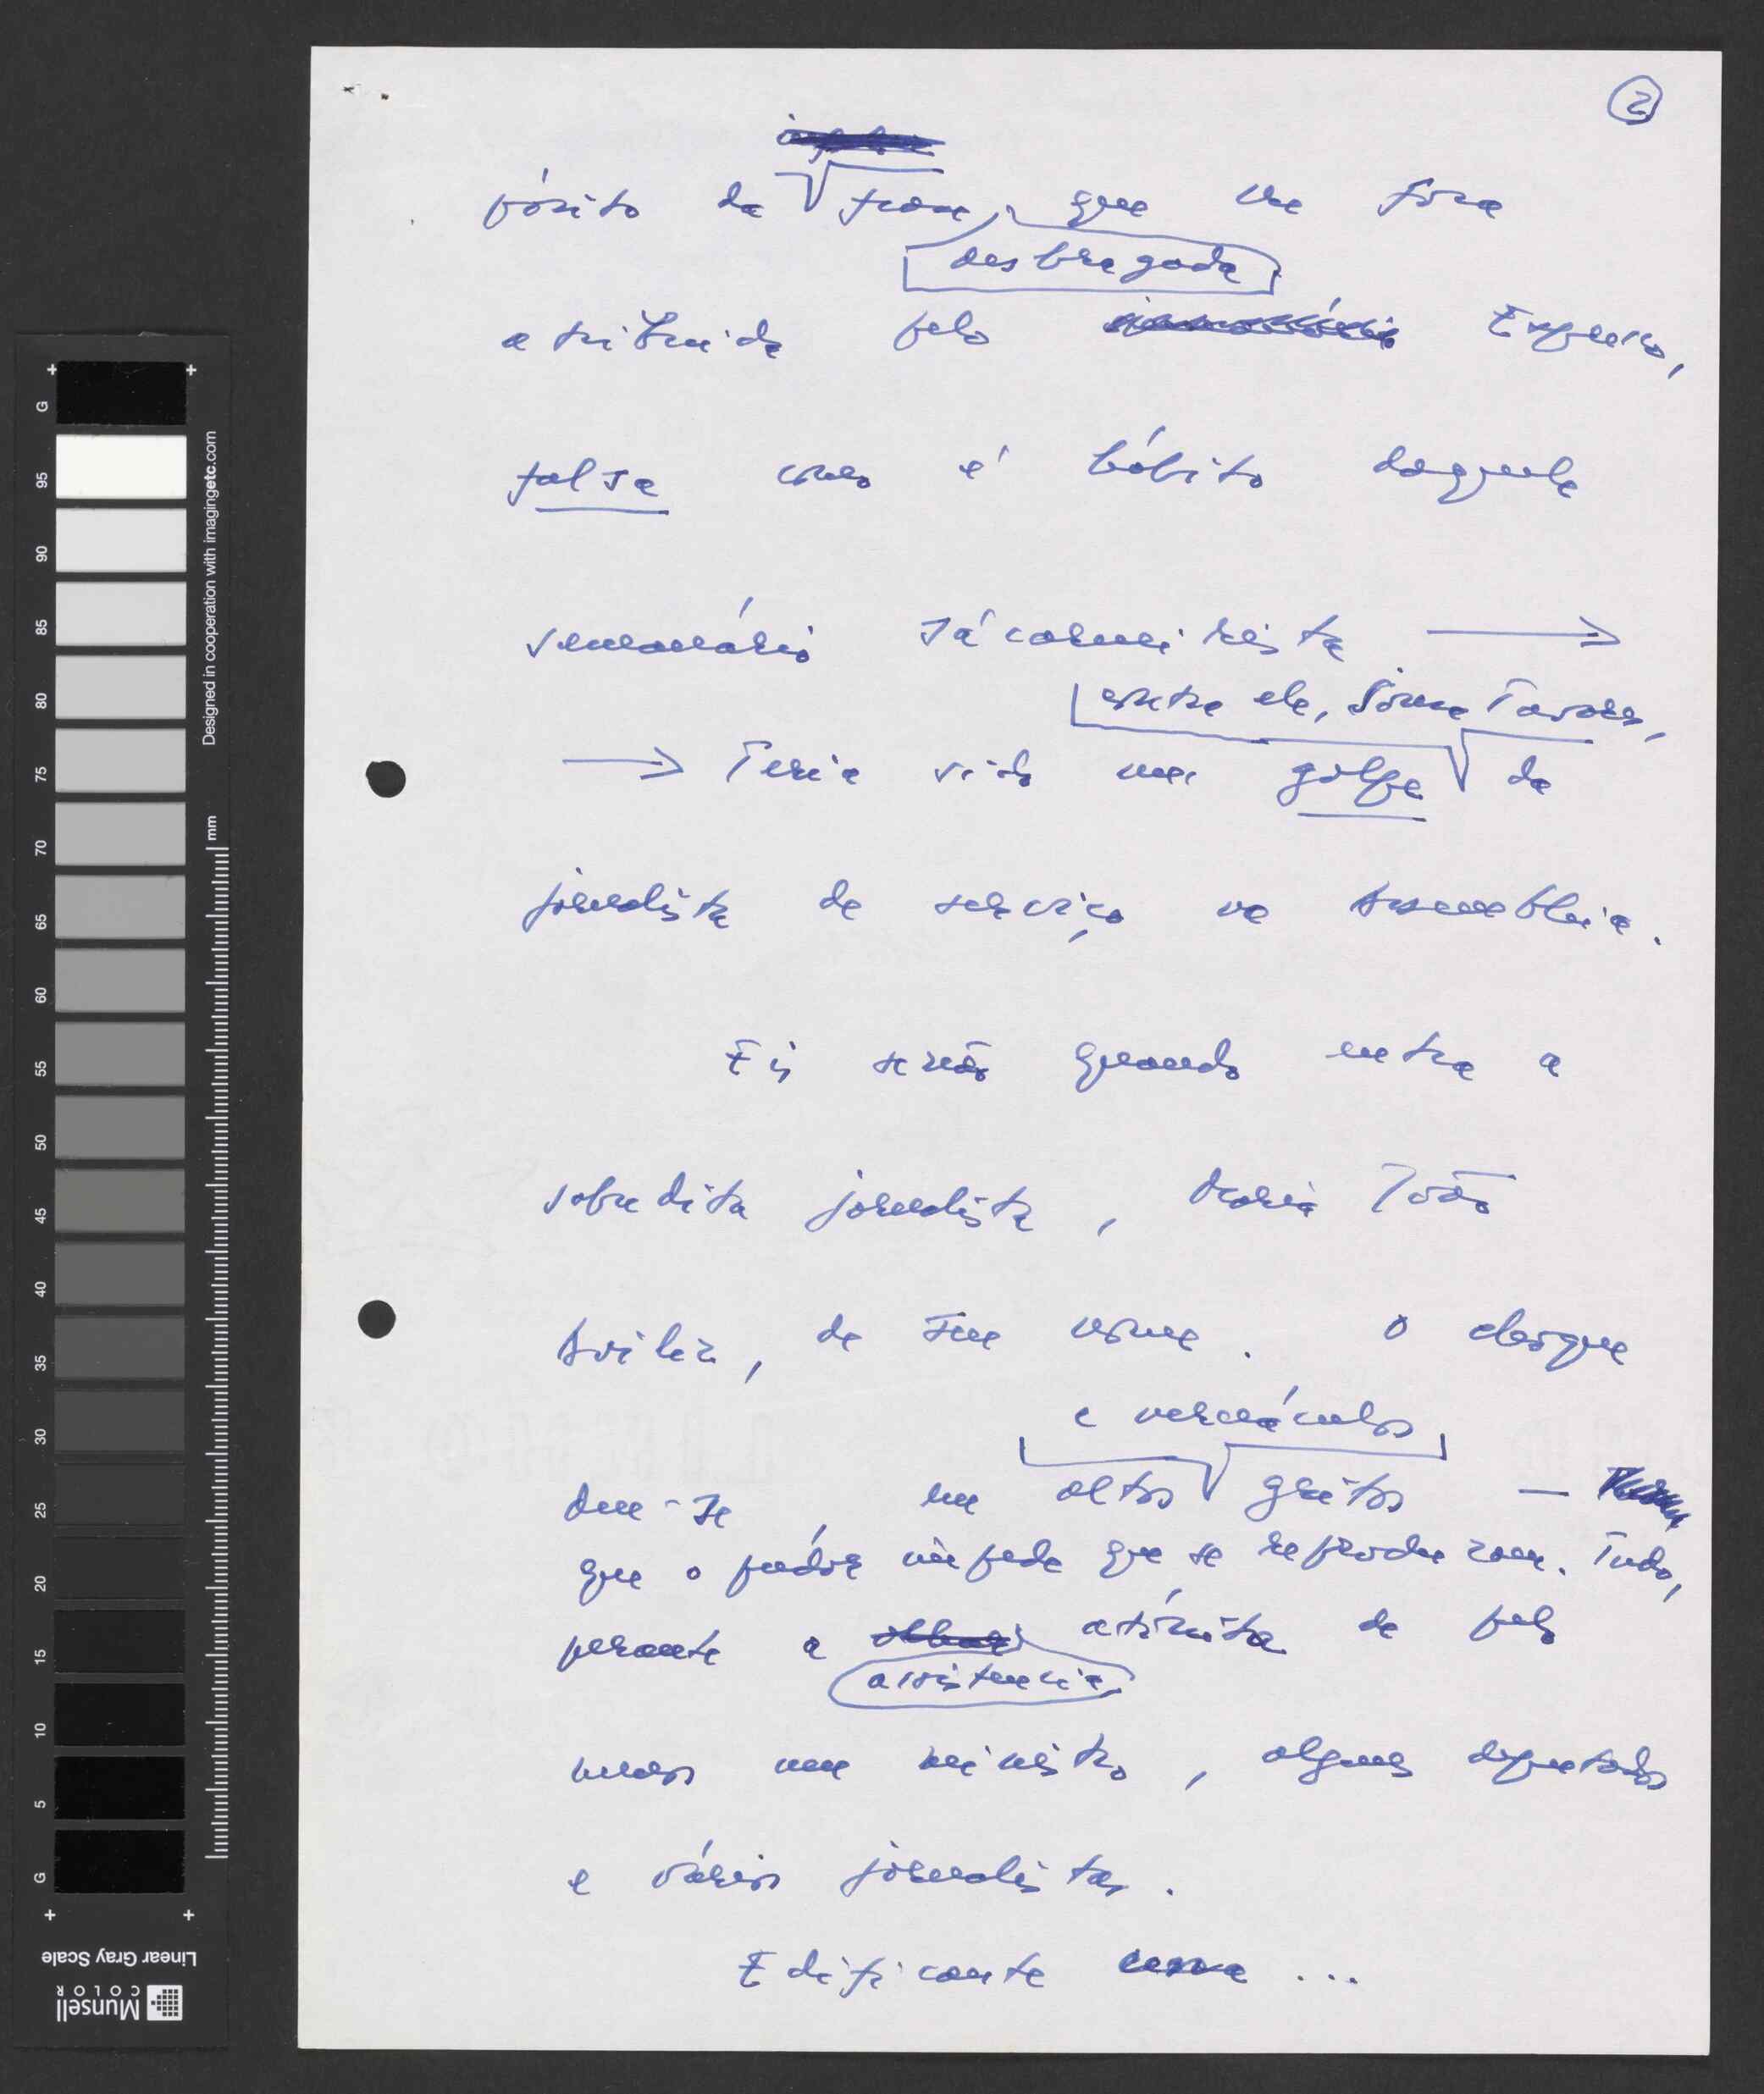 2
pósito da frase, que lhe fora
desbragada
atribuida pelo Expresso,
falsa como é hábito daquele
semanário sácarneirista →
contra ele, Sousa Tavares,
→ Teria sido um golpe da
jornalista de serviço na Assembleia.
Eis senão quando entra a
sobredita jornalista, Maria João
Avilez, de seu nome. O destaque
e vernáculos
deu-se, em altos gritos —
que o pudor impede que se reproduzam. Tudo,
perante a atónita de pelo
assistencia
menos um ministro, alguns deputados
e vários jornalistas.
Edificante cena...
G
95
90
85
80
75
70
65
60
55
50
45
40
35
30
25
20
15
10
5
G
Designed in cooperation with imagingetc.com
mm
Linear Gray Scale
Munsell
COLOR